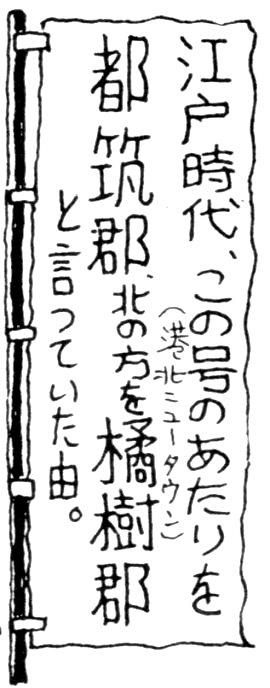 江戸時代、この号のあたりを
(港北ニュータウン)
都筑郡、北の方を橘樹郡
と言っていた由。